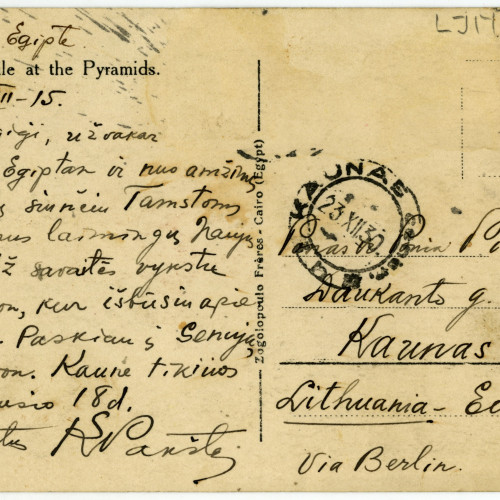 LJM
Egipte
le at the Pyramids.
II-15.
užvakar
Egiptan ir nuo amžinų
siunčiu Tamstoms
laimingų Naujų
savaitės vykstu
on, kur išbusiu apie
Paskiau į Seniją
on. Kaune tikiuos
18 d.
Zogolopoulo Frères - Cairo (Egypt)
KAUNAS
23 XII 35
Ponia P
Daukanto g.
Kaunas
Lithuania - E
Via Berlin.